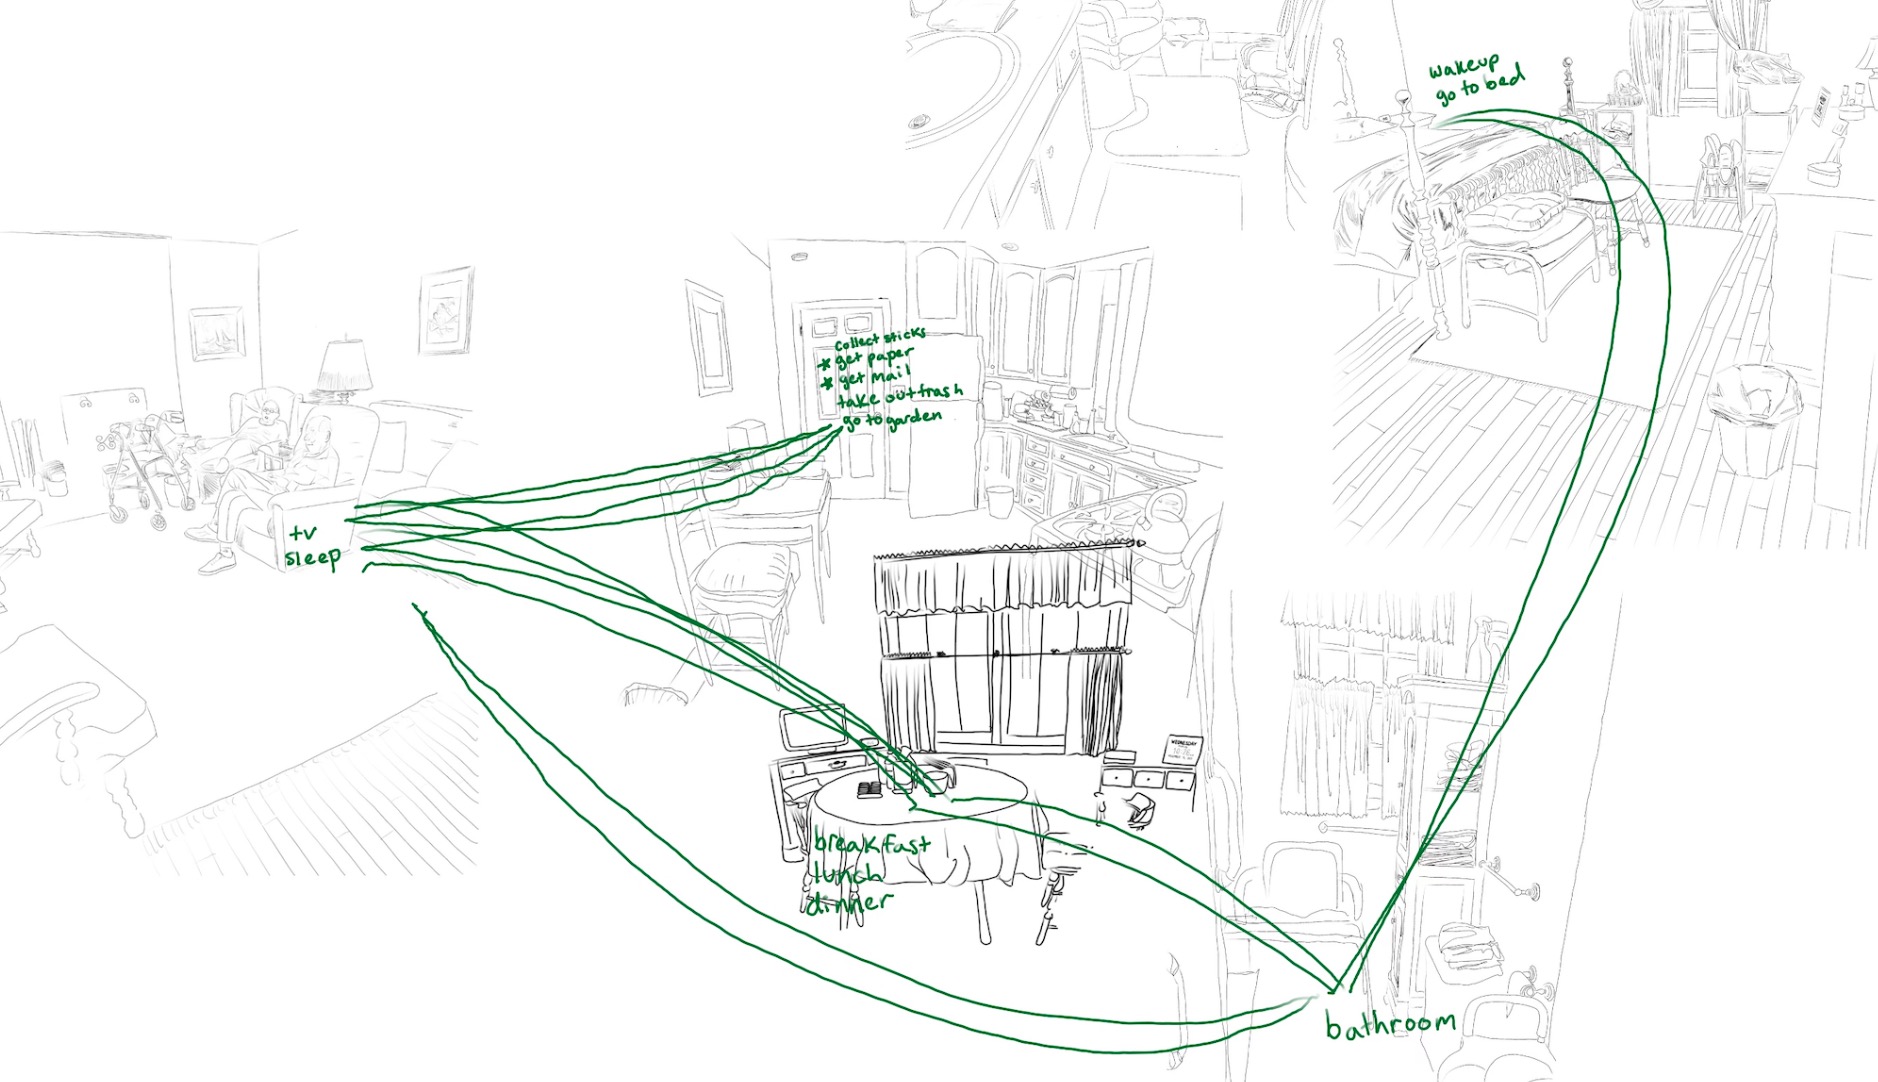 wakeup
go to bed
collect sticks
* get paper
* get mail
take out trash
go to garden
tv
sleep
WEDNESDAY
breakfast
lunch
dinner
bathroom